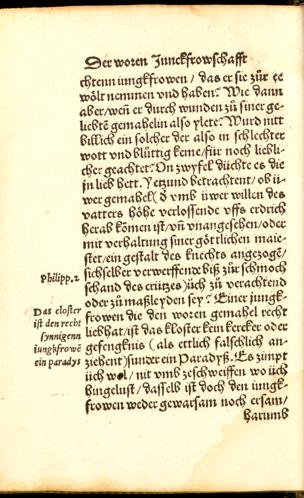 Der woren Junckfrowschafft
chtenn iungkfrowen / das er sie zůr ee
wǒlt nemmen vnd haben? Wie dann
aber / weñ er durch wunden zů siner ge-
liebtē gemahelin also ylete? Wurd nitt
billich ein solcher der also in schlechter
wott vnd blůttig keme / für noch liebli-
cher geachtet? On zwyfel düchte es die
jn lieb hett. Yetzund betrachtent / ob ü-
wer gemahel (ď vmb üwer willen des
vatters höhe verlossende vffs erdrich
herab kömen ist / vñ vnangesehen / oder
mit verhaltung siner göttlichen maie-
stet / ein gestalt des knechts angezogē /
sichselber verwerffende biß zür schmoch
Philipp. 2
schand des crützes) üch zů verachtend
oder zů maßleyden sey? Einer jungk-
frowen die den woren gemahel recht
liebhat / ist das kloster kein kercker oder
gefengknis (als ettlich falschlich an-
ziehent) sunder ein Paradyß. Es zimpt
Das closter
ist den recht
synnigenn
iungkfrowē
ein paradys
üch wol / nit vmb zeschweiffen wo üch
hingelust / dasselb ist doch den iungk-
frowen weder gewarsam noch ersam /
harumb